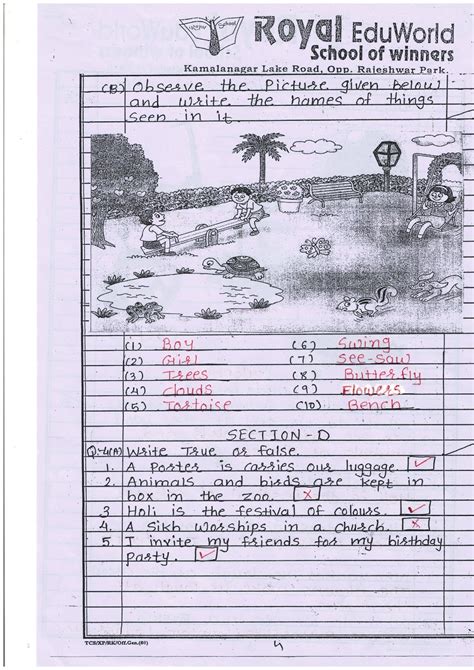 Royal EduWorld
School of winners
Kamalanagar Lake Road, Opp. Rajeshwar Park.
(B) Observe the Picture given below
and write the names of things
seen in it.
(1) Boy (6) Swing
(2) Girl (7) See-saw
(3) Trees (8) Butterfly
(4) Clouds (9) Flowers
(5) Tortoise (10) Bench
SECTION - D
Q.4(A) Write True or false.
1. A Poster is carries our luggage. ✓
2. Animals and birds are kept in
box in the zoo. ×
3 Holi is the festival of colours. ✓
4. A Sikh worships in a church. ×
5 I invite my friends for my birthday
party. ✓
TCS/XP/RK/Off.Gen.(01)
4